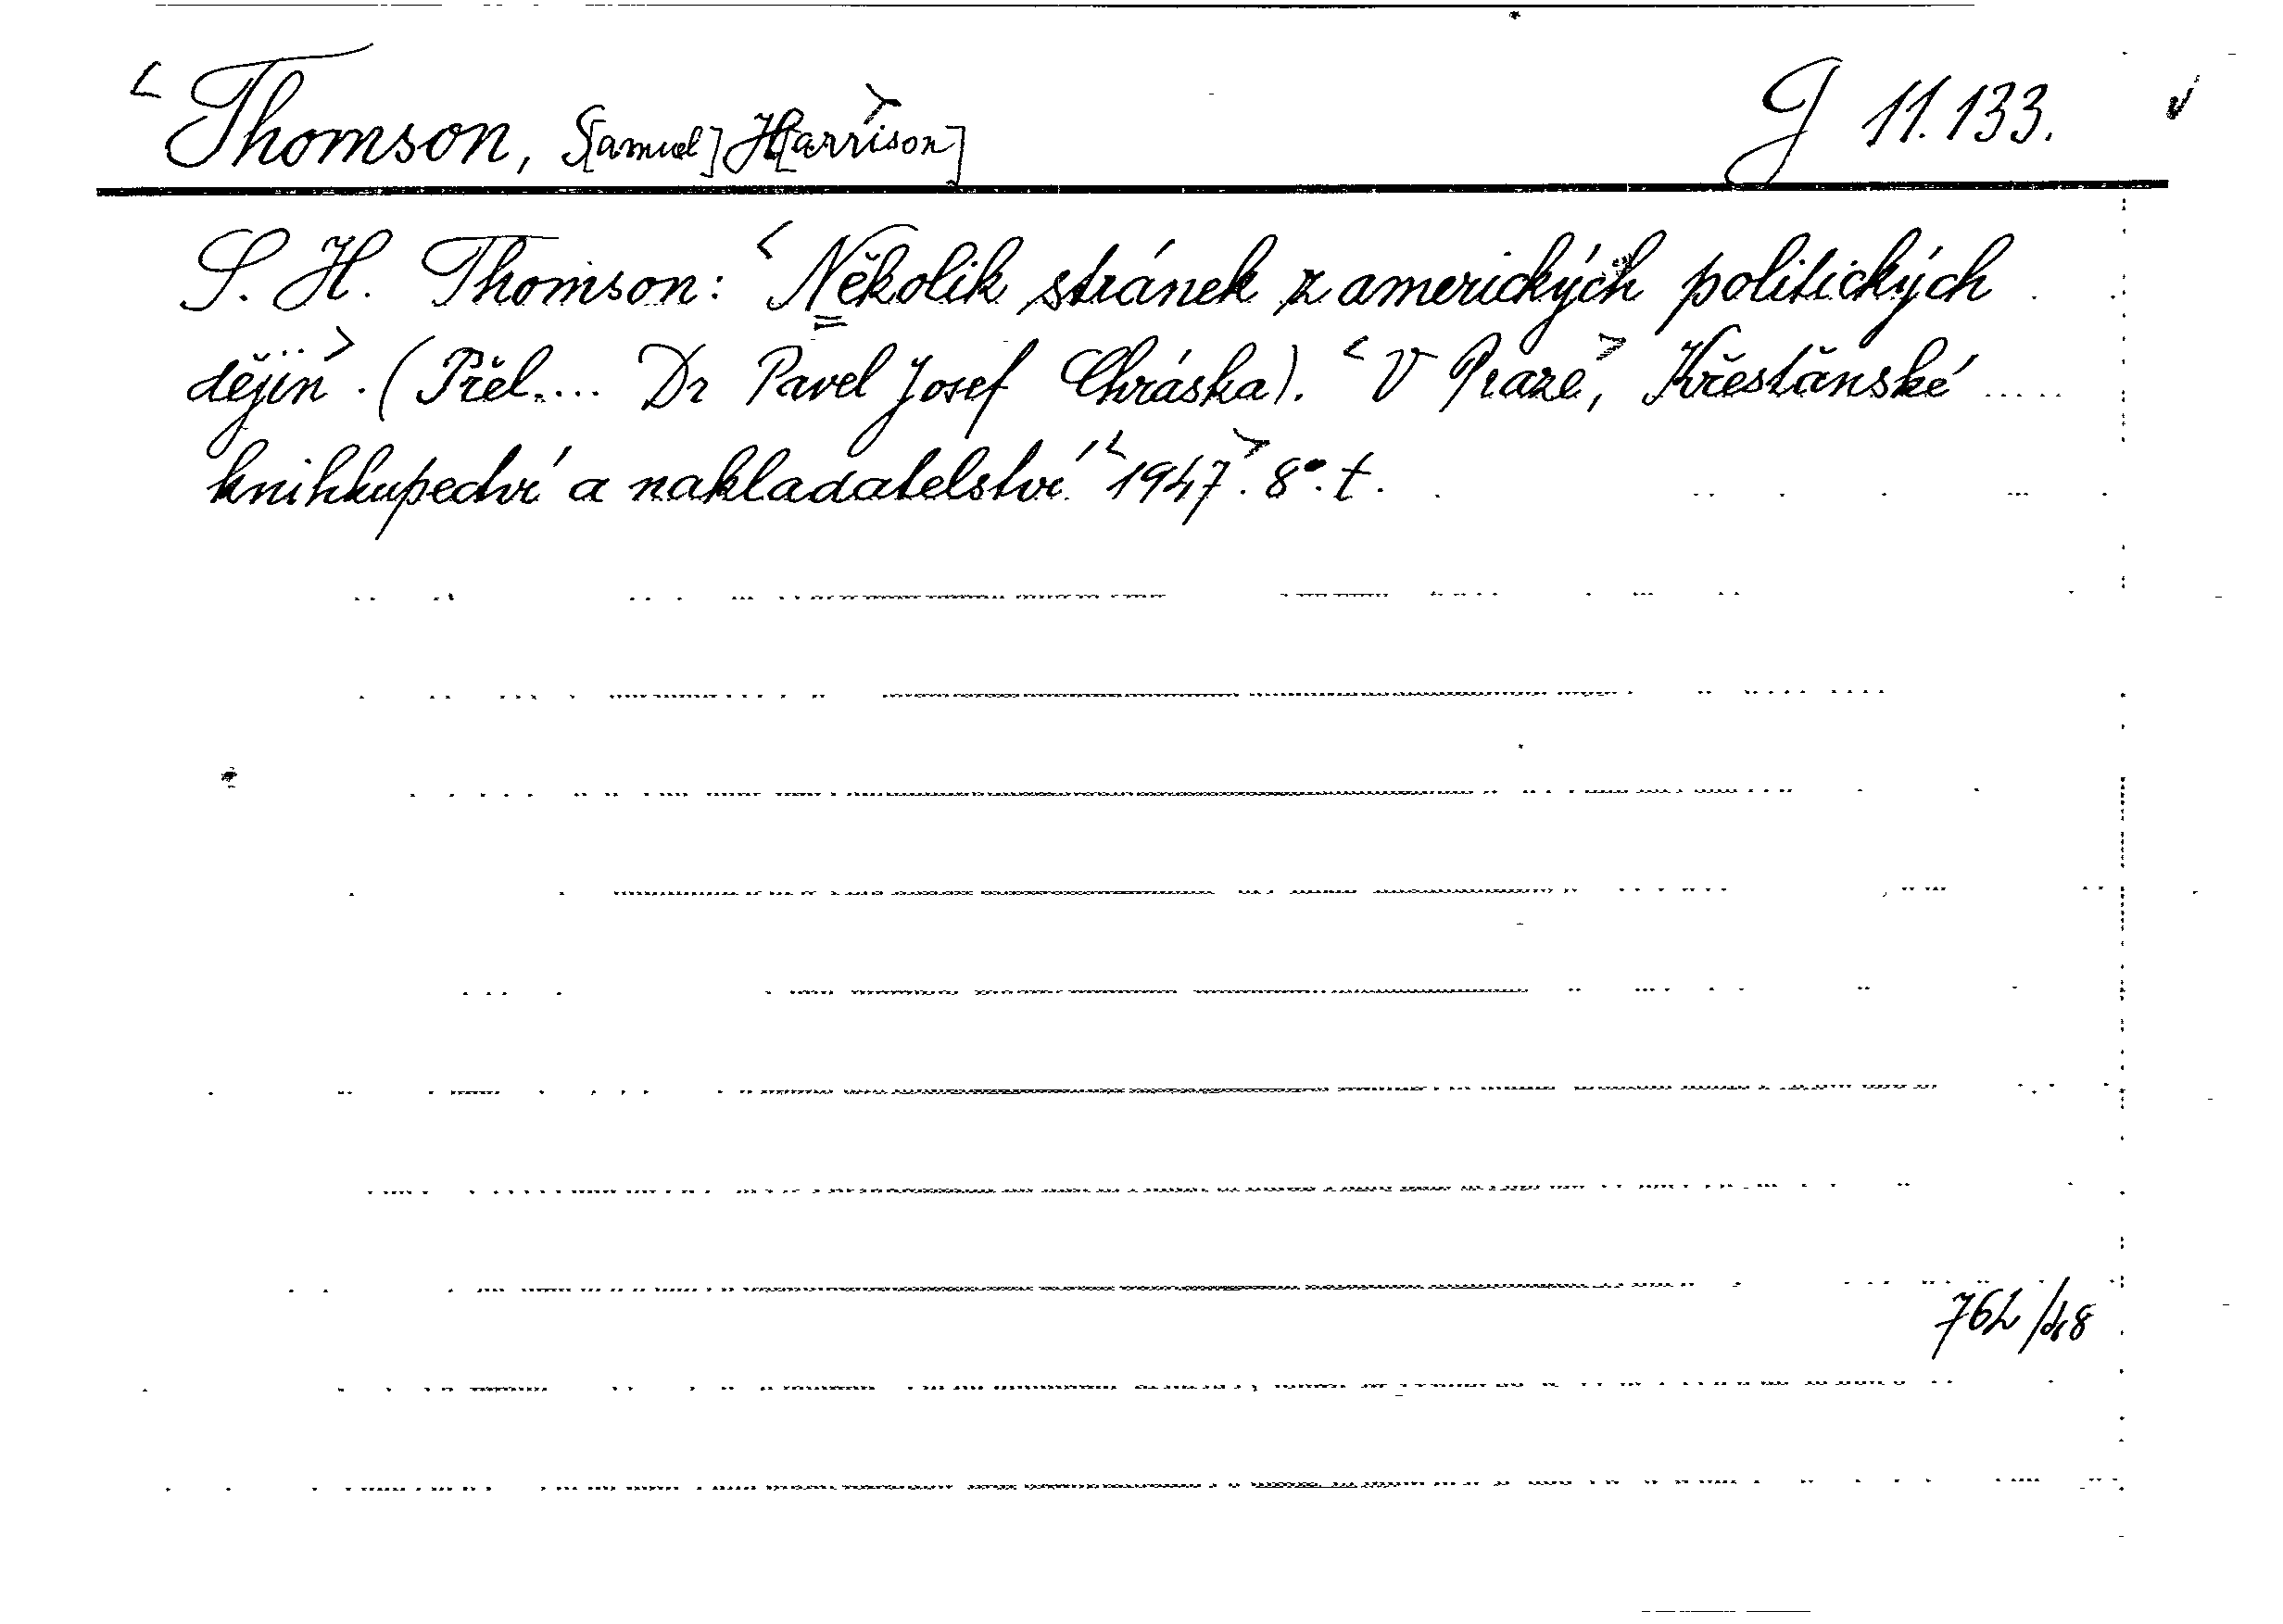 <Thomson, S[amuel] H[arrison]> J 11.133. v
S. H. Thomson: <Několik stránek z amerických politických
dějin>. (Přel.... Dr Pavel Josef Chráska). <V Praze>, Křesťanské
knihkupectví a nakladatelství <1947>. 8°. t.
762/48